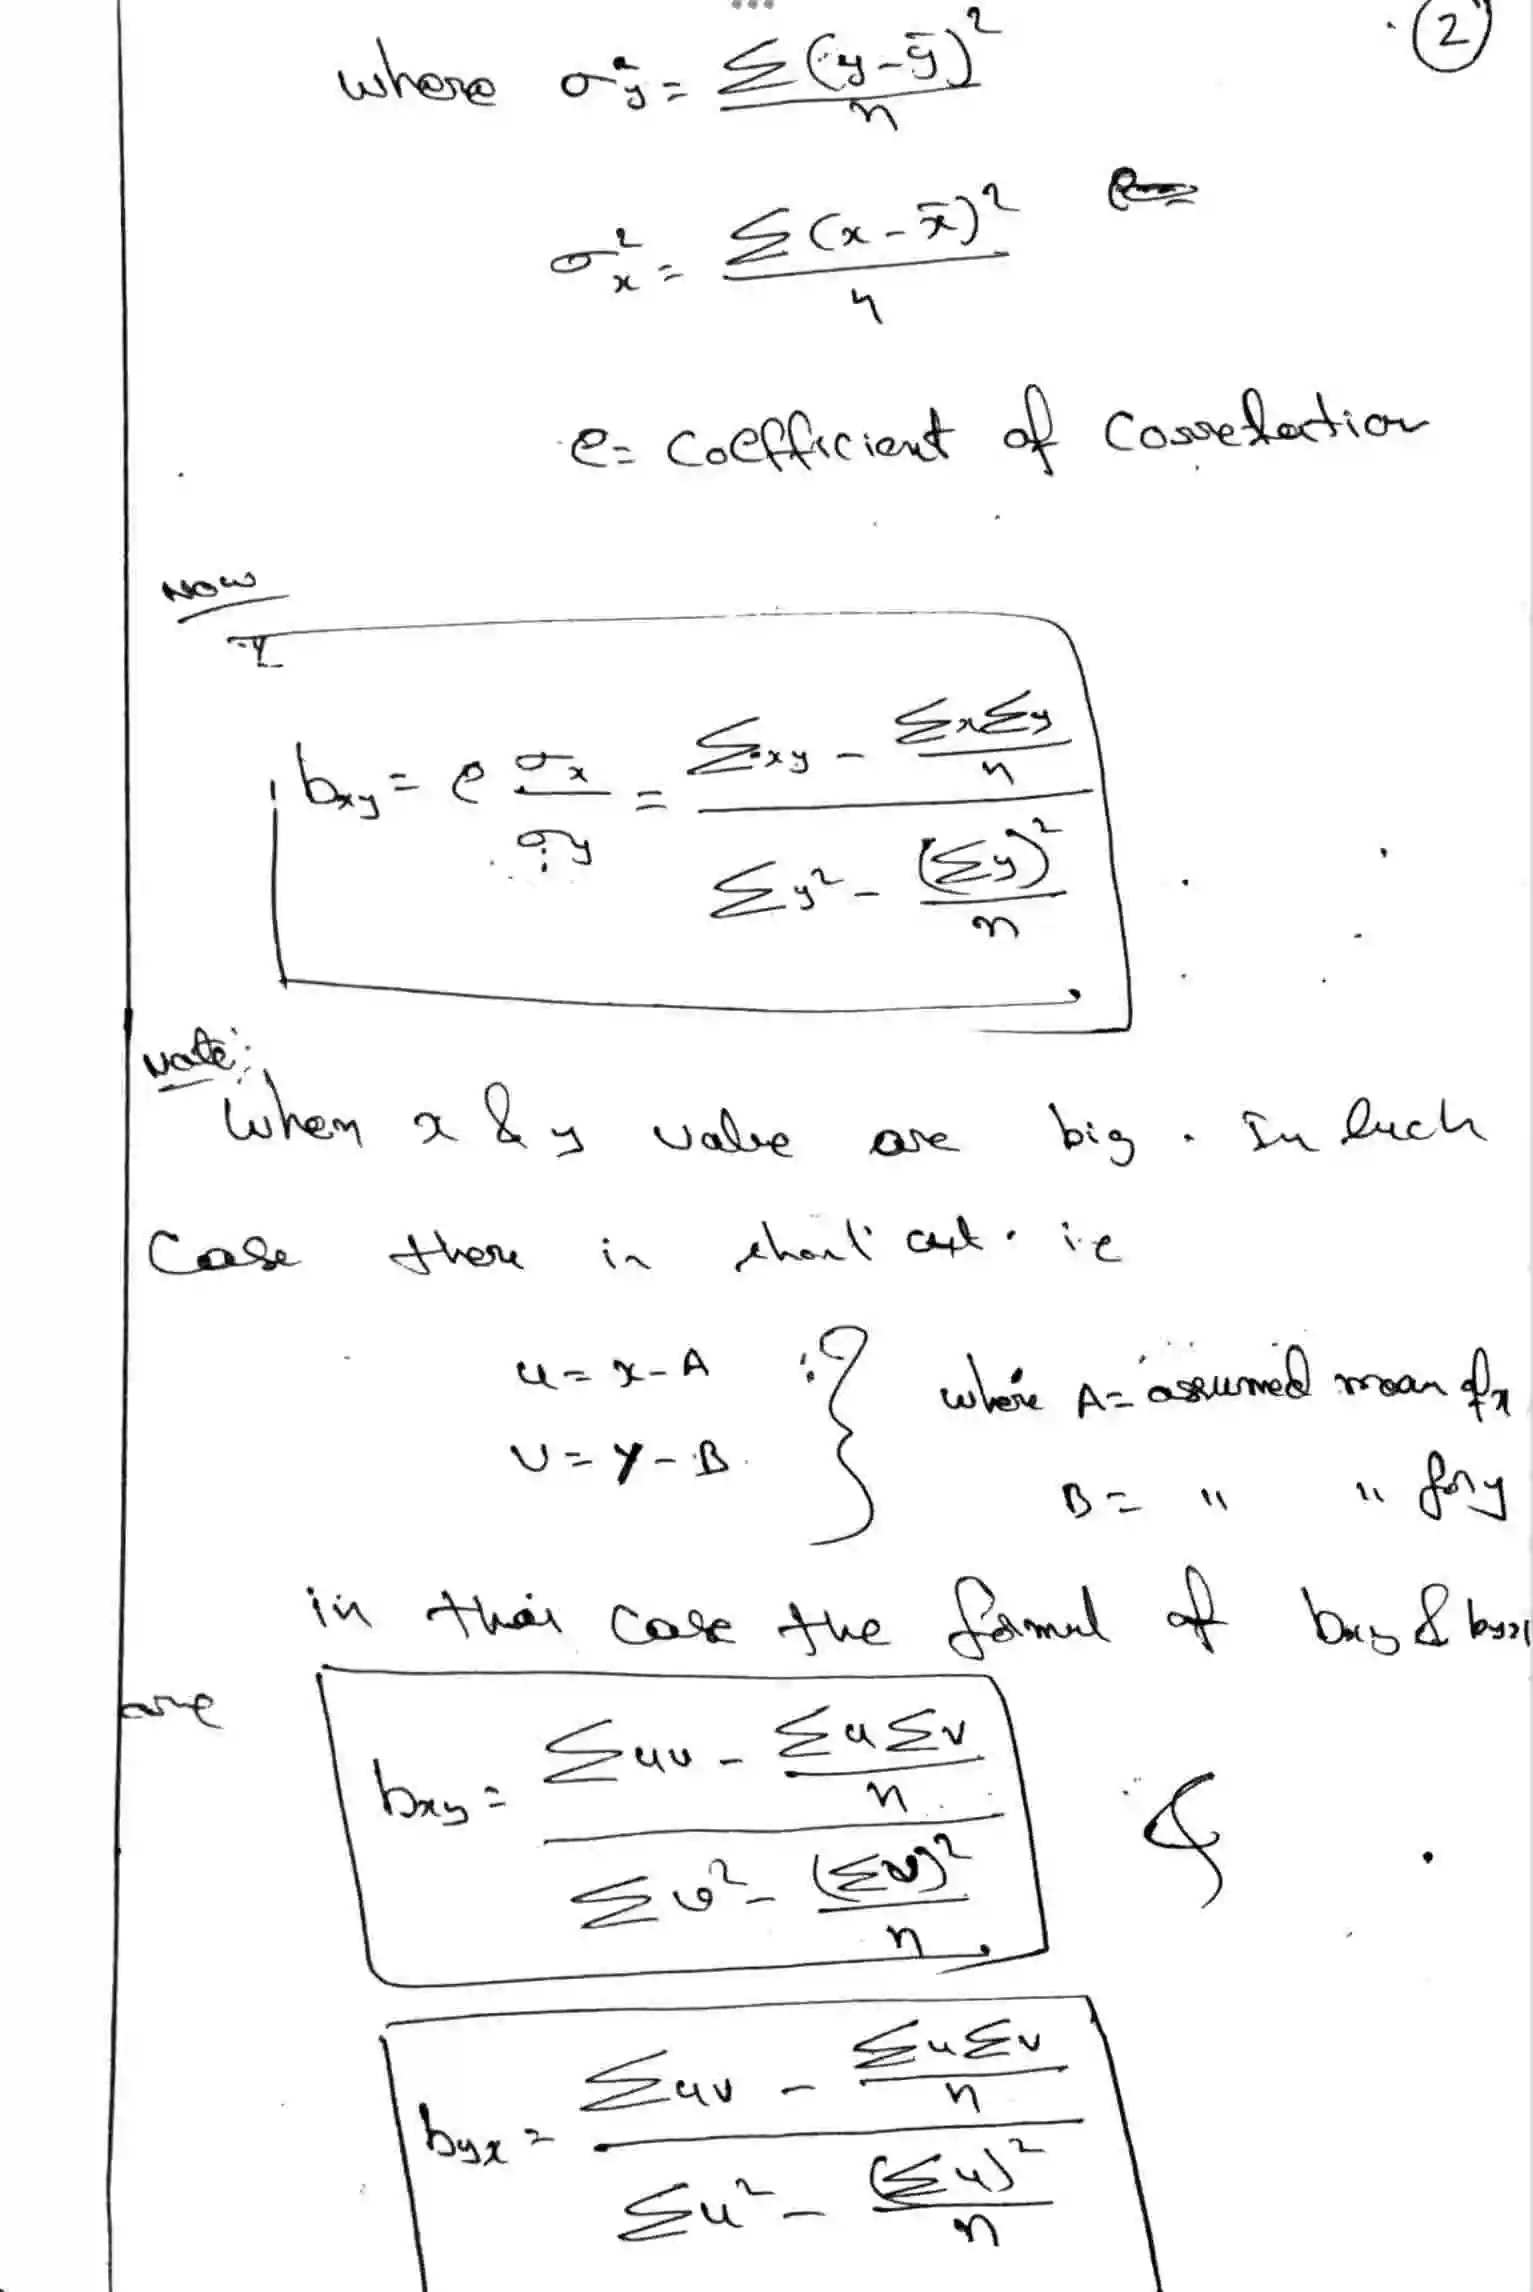 (2)
where σ²y = Σ(y-ȳ)² / n
σ²x = Σ(x-x̄)² / n
e = Coefficient of Correlation
Now
bxy = e σx / σy = (Σxy - ΣxΣy / n) / (Σy² - (Σy)² / n)
Note:
When x & y value are big. In such
Case there is short cut. ie
u = x - A } where A = assumed mean of x
v = y - B } B = " " for y
in this case the formul of bxy & byx
are
bxy = (Σuv - ΣuΣv / n) / (Σv² - (Σv)² / n) &
byx = (Σuv - ΣuΣv / n) / (Σu² - (Σu)² / n)